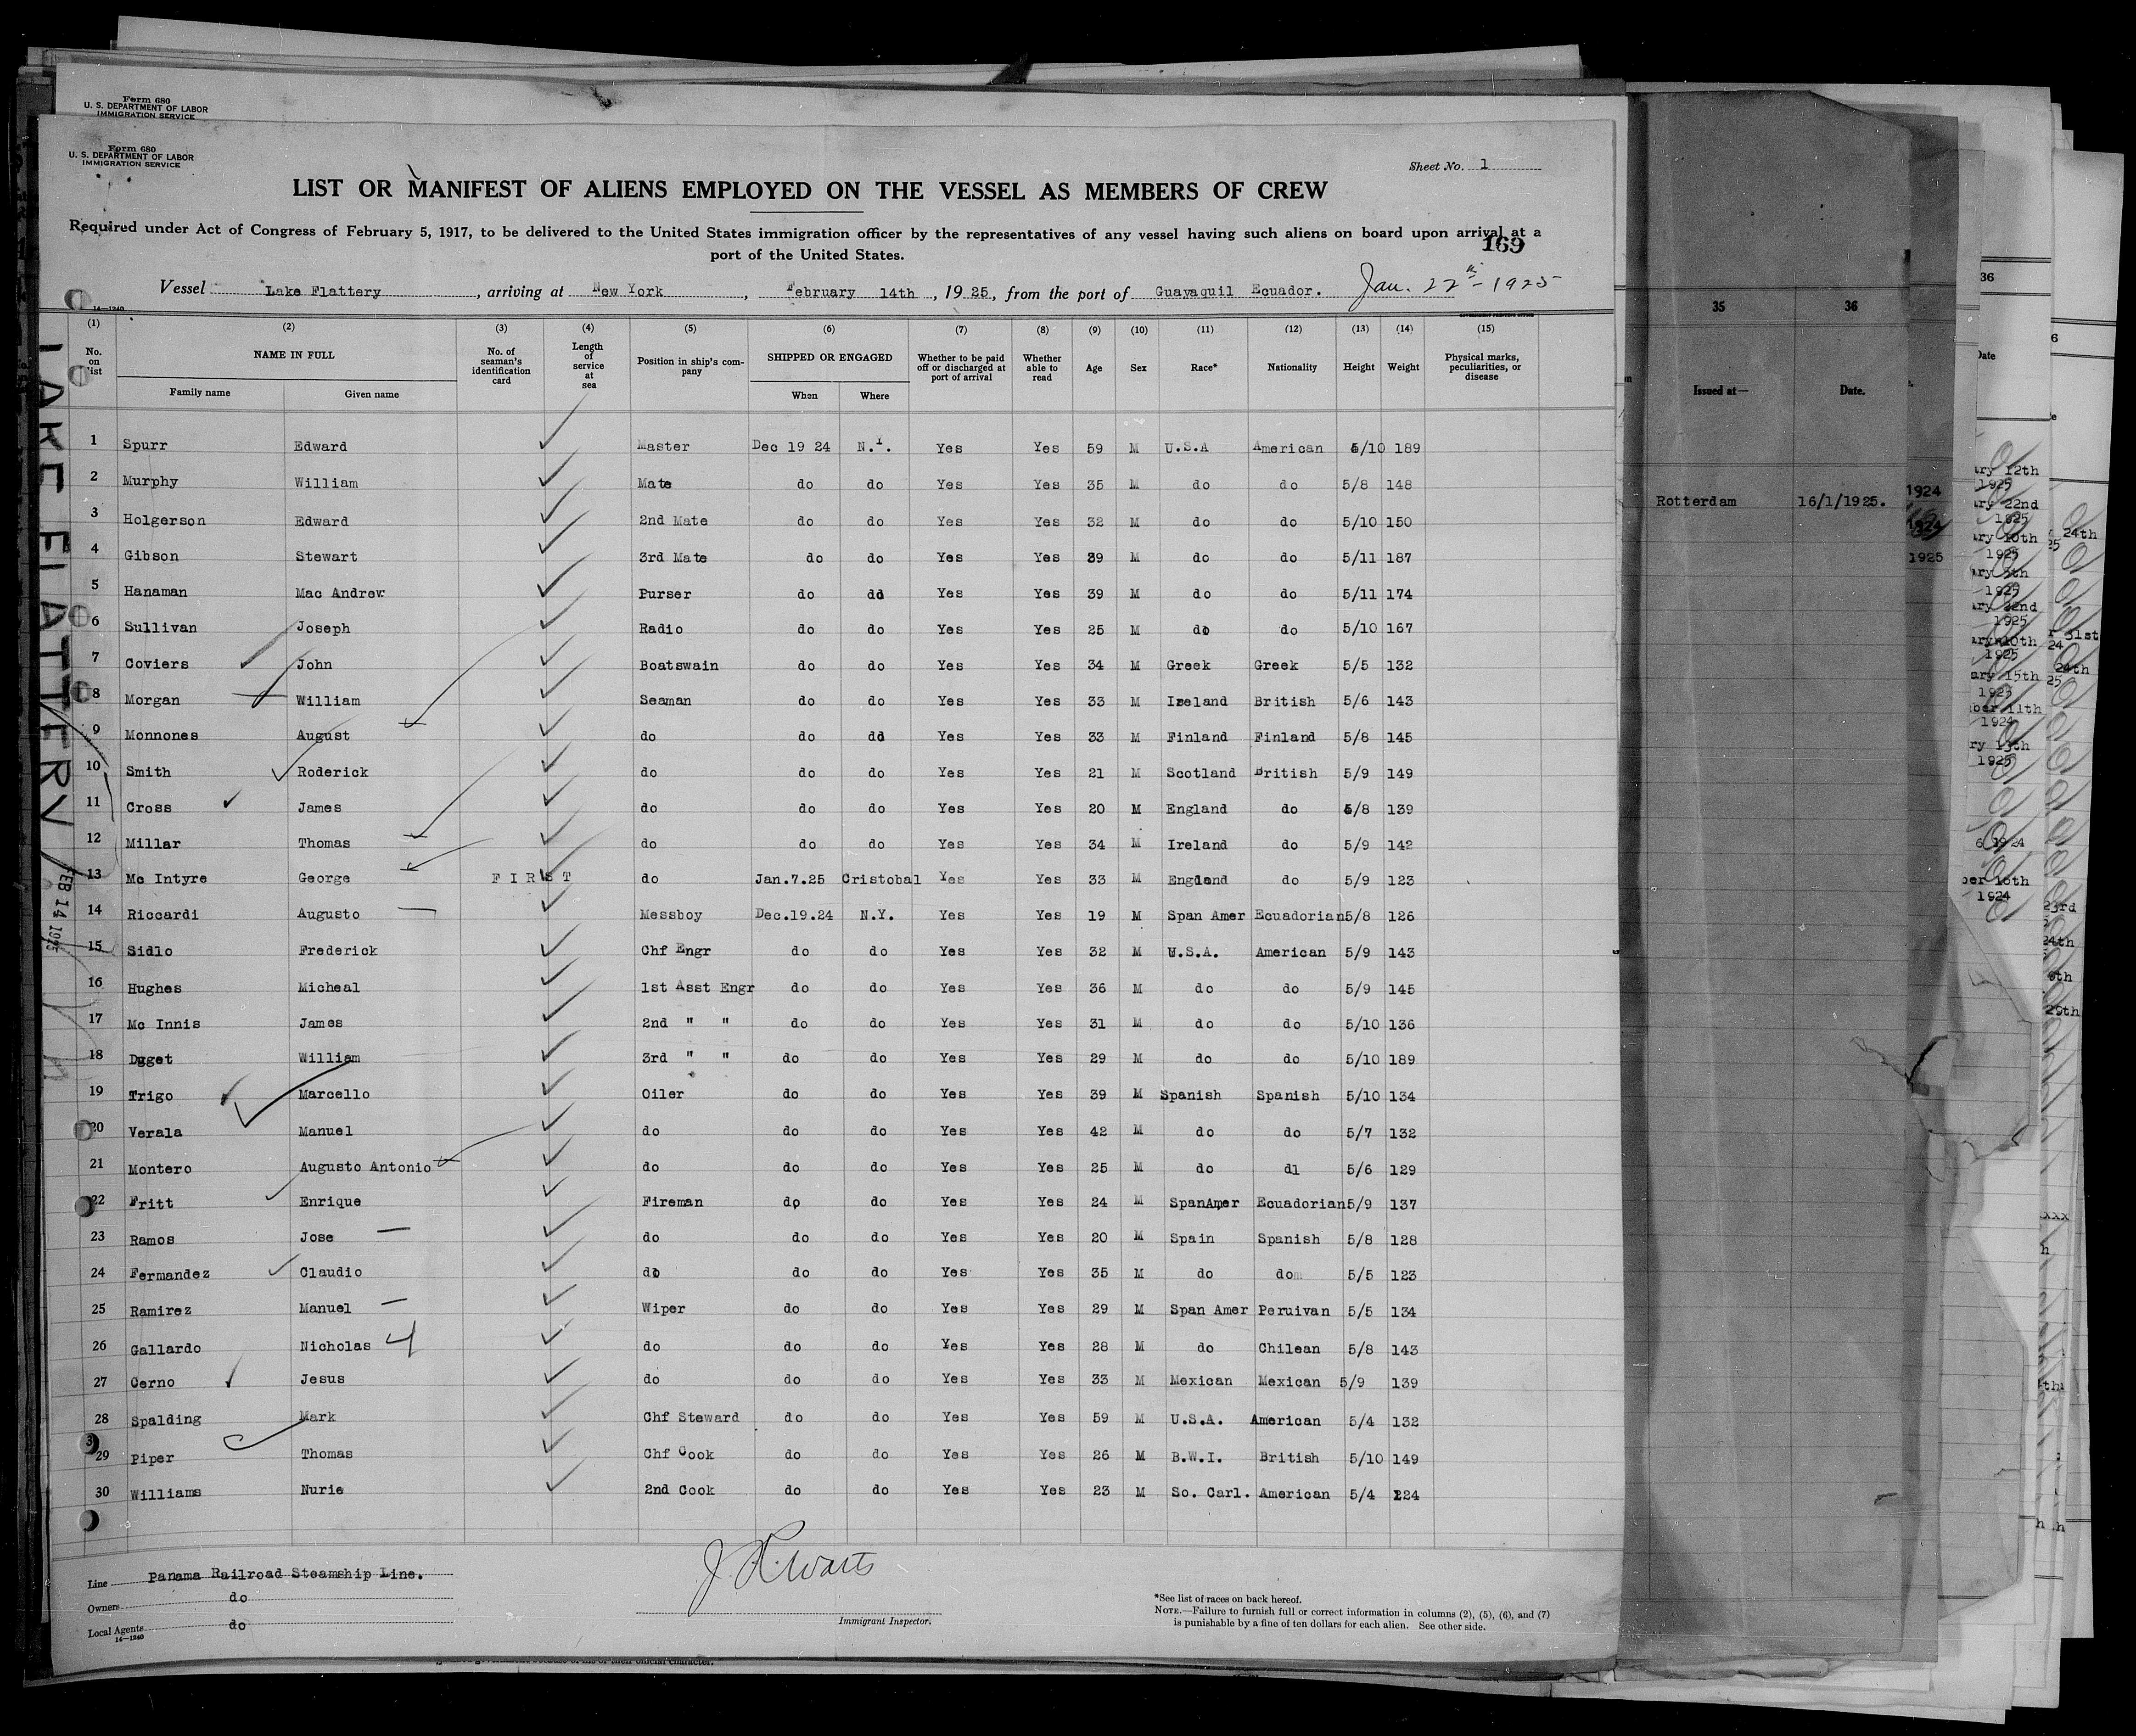 Form 680
U. S. DEPARTMENT OF LABOR
IMMIGRATION SERVICE
Form 680
U. S. DEPARTMENT OF LABOR
IMMIGRATION SERVICE
Sheet No. 1
LIST OR MANIFEST OF ALIENS EMPLOYED ON THE VESSEL AS MEMBERS OF CREW
Required under Act of Congress of February 5, 1917, to be delivered to the United States immigration officer by the representatives of any vessel having such aliens on board upon arrival at a
port of the United States.
169
Vessel Lake Flattery, arriving at New York, February 14th, 1925, from the port of Guayaquil Ecuador. Jan. 22th - 1925
14—1240
(1) (2) (3) (4) (5) (6) (7) (8) (9) (10) (11) (12) (13) (14) (15)
No. on list NAME IN FULL No. of seaman's identification card Length of service at sea Position in ship's company SHIPPED OR ENGAGED Whether to be paid off or discharged at port of arrival Whether able to read Age Sex Race* Nationality Height Weight Physical marks, peculiarities, or disease
Family name Given name When Where
1 Spurr Edward Master Dec 19 24 N.Y. Yes Yes 59 M U.S.A American 5/10 189
2 Murphy William Mate do do Yes Yes 35 M do do 5/8 148
3 Holgerson Edward 2nd Mate do do Yes Yes 32 M do do 5/10 150
4 Gibson Stewart 3rd Mate do do Yes Yes 39 M do do 5/11 187
5 Hanaman Mac Andrew Purser do dd Yes Yes 39 M do do 5/11 174
6 Sullivan Joseph Radio do do Yes Yes 25 M do do 5/10 167
7 Coviers John Boatswain do do Yes Yes 34 M Greek Greek 5/5 132
8 Morgan William Seaman do do Yes Yes 33 M Ireland British 5/6 143
9 Monnones August do do dd Yes Yes 33 M Finland Finland 5/8 145
10 Smith Roderick do do do Yes Yes 21 M Scotland British 5/9 149
11 Cross James do do do Yes Yes 20 M England do 5/8 139
12 Millar Thomas do do do Yes Yes 34 M Ireland do 5/9 142
13 Mc Intyre George FIRST do Jan.7.25 Cristobal Yes Yes 33 M England do 5/9 123
14 Riccardi Augusto Messboy Dec.19.24 N.Y. Yes Yes 19 M Span Amer Ecuadorian 5/8 126
15 Sidlo Frederick Chf Engr do do Yes Yes 32 M U.S.A. American 5/9 143
16 Hughes Micheal 1st Asst Engr do do Yes Yes 36 M do do 5/9 145
17 Mc Innis James 2nd " " do do Yes Yes 31 M do do 5/10 136
18 Dgget William 3rd " " do do Yes Yes 29 M do do 5/10 189
19 Trigo Marcello Oiler do do Yes Yes 39 M Spanish Spanish 5/10 134
20 Verala Manuel do do do Yes Yes 42 M do do 5/7 132
21 Montero Augusto Antonio do do do Yes Yes 25 M do dl 5/6 129
22 Fritt Enrique Fireman do do Yes Yes 24 M SpanAmer Ecuadorian 5/9 137
23 Ramos Jose do do do Yes Yes 20 M Spain Spanish 5/8 128
24 Fermandez Claudio do do do Yes Yes 35 M do dom 5/5 123
25 Ramirez Manuel Wiper do do Yes Yes 29 M Span Amer Peruivan 5/5 134
26 Gallardo Nicholas do do do Yes Yes 28 M do Chilean 5/8 143
27 Cerno Jesus do do do Yes Yes 33 M Mexican Mexican 5/9 139
28 Spalding Mark Chf Steward do do Yes Yes 59 M U.S.A. American 5/4 132
29 Piper Thomas Chf Cook do do Yes Yes 26 M B.W.I. British 5/10 149
30 Williams Nurie 2nd Cook do do Yes Yes 23 M So. Carl. American 5/4 224
LAKE FLATTERY
FEB 14 1925
Line Panama Railroad Steamship Line.
Owners do
Local Agents do
14—1240
Immigrant Inspector.
*See list of races on back hereof.
NOTE.—Failure to furnish full or correct information in columns (2), (5), (6), and (7)
is punishable by a fine of ten dollars for each alien. See other side.
35 36
Issued at— Date.
Rotterdam 16/1/1925.
1924
1925
36